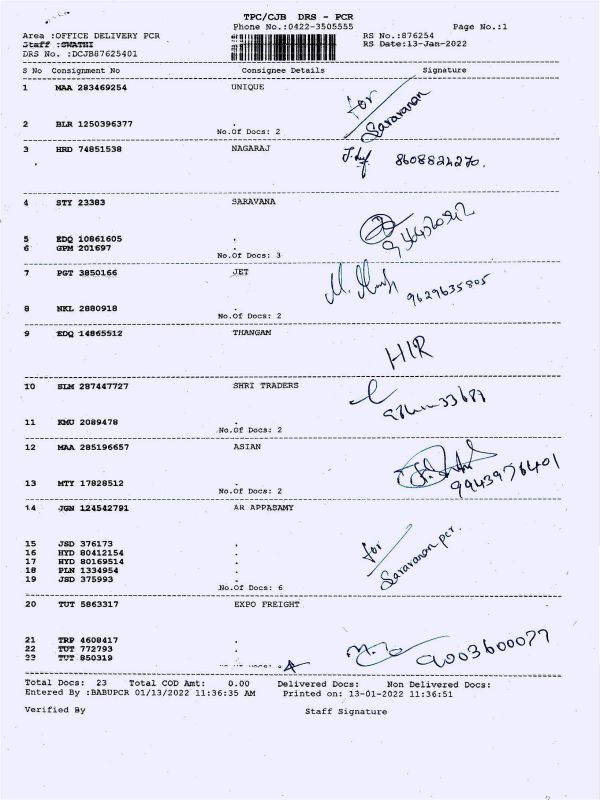 TPC/CJB DRS - PCR
Phone No.:0422-3505555 Page No.:1
Area :OFFICE DELIVERY PCR RS No.:876254
Staff :SWATHI RS Date:13-Jan-2022
DRS No. :DCJB87625401
S No Consignment No Consignee Details Signature
1 MAA 283469254 UNIQUE for
Saravanan
2 BLR 1250396377 .
No.Of Docs: 2
3 HRD 74851538 NAGARAJ 8608824270.
4 STY 23383 SARAVANA
5 EDQ 10861605 .
6 GPM 201697 .
No.Of Docs: 3
7 PGT 3850166 JET
9629635805
8 NKL 2880918 .
No.Of Docs: 2
9 EDQ 14865512 THANGAM
HIR
10 SLM 287447727 SHRI TRADERS
11 KMU 2089478 .
No.Of Docs: 2
12 MAA 285196657 ASIAN
9943976401
13 MTY 17828512 .
No.Of Docs: 2
14 JGN 124542791 AR APPASAMY
for
Saravanan pcr.
15 JSD 376173 .
16 HYD 80412154 .
17 HYD 80169514 .
18 PLN 1334954 .
19 JSD 375993 .
No.Of Docs: 6
20 TUT 5863317 EXPO FREIGHT
21 TRP 4608417 .
22 TUT 772793 .
9003600077
23 TUT 850319 .
4
Total Docs: 23 Total COD Amt: 0.00 Delivered Docs: Non Delivered Docs:
Entered By :BABUPCR 01/13/2022 11:36:35 AM Printed on: 13-01-2022 11:36:51
Verified By Staff Signature